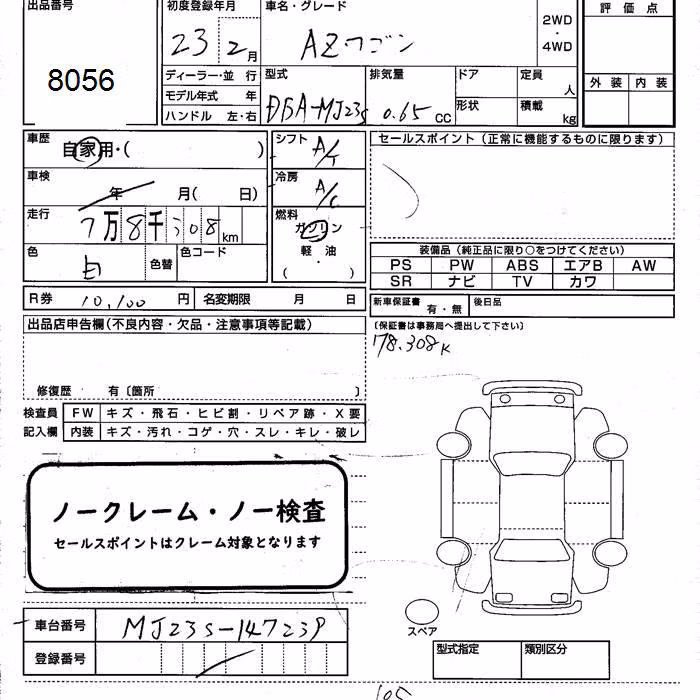 出品番号 初度登録年月 車名・グレード 2WD・4WD 評価点
8056 23 2月 AZワゴン
ディーラー・並行 型式 排気量 ドア 定員 人 外装 内装
モデル年式 年 DBA-MJ23S 0.65 CC 形状 積載 kg
ハンドル 左・右
車歴 自家用・( ) シフト A/T セールスポイント(正常に機能するものに限ります)
車検 年 月( 日) 冷房 A/C
走行 7万8千308km 燃料 ガソリン
色 白 色替 色コード 軽・油 ( )
装備品(純正品に限り○をつけてください)
PS PW ABS エアB AW
SR ナビ TV カワ
R券 10,100円 名変期限 月 日 新車保証書 有・無 後日品
(保証書は事務局へ提出して下さい)
出品店申告欄(不良内容・欠品・注意事項等記載)
78.308K
修復歴 有〔箇所 〕
検査員 FW キズ・飛石・ヒビ割・リペア跡・X要
記入欄 内装 キズ・汚れ・コゲ・穴・スレ・キレ・破レ
ノークレーム・ノー検査
セールスポイントはクレーム対象となります
スペア
車台番号 MJ23S-147239
登録番号 型式指定 類別区分
105